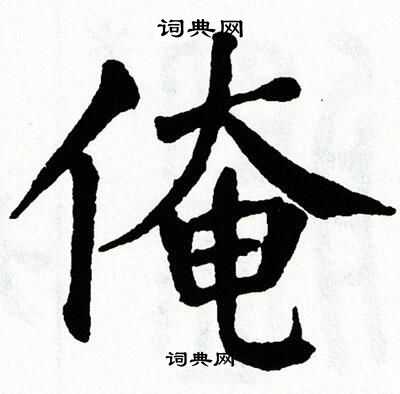 词典网
俺
词典网